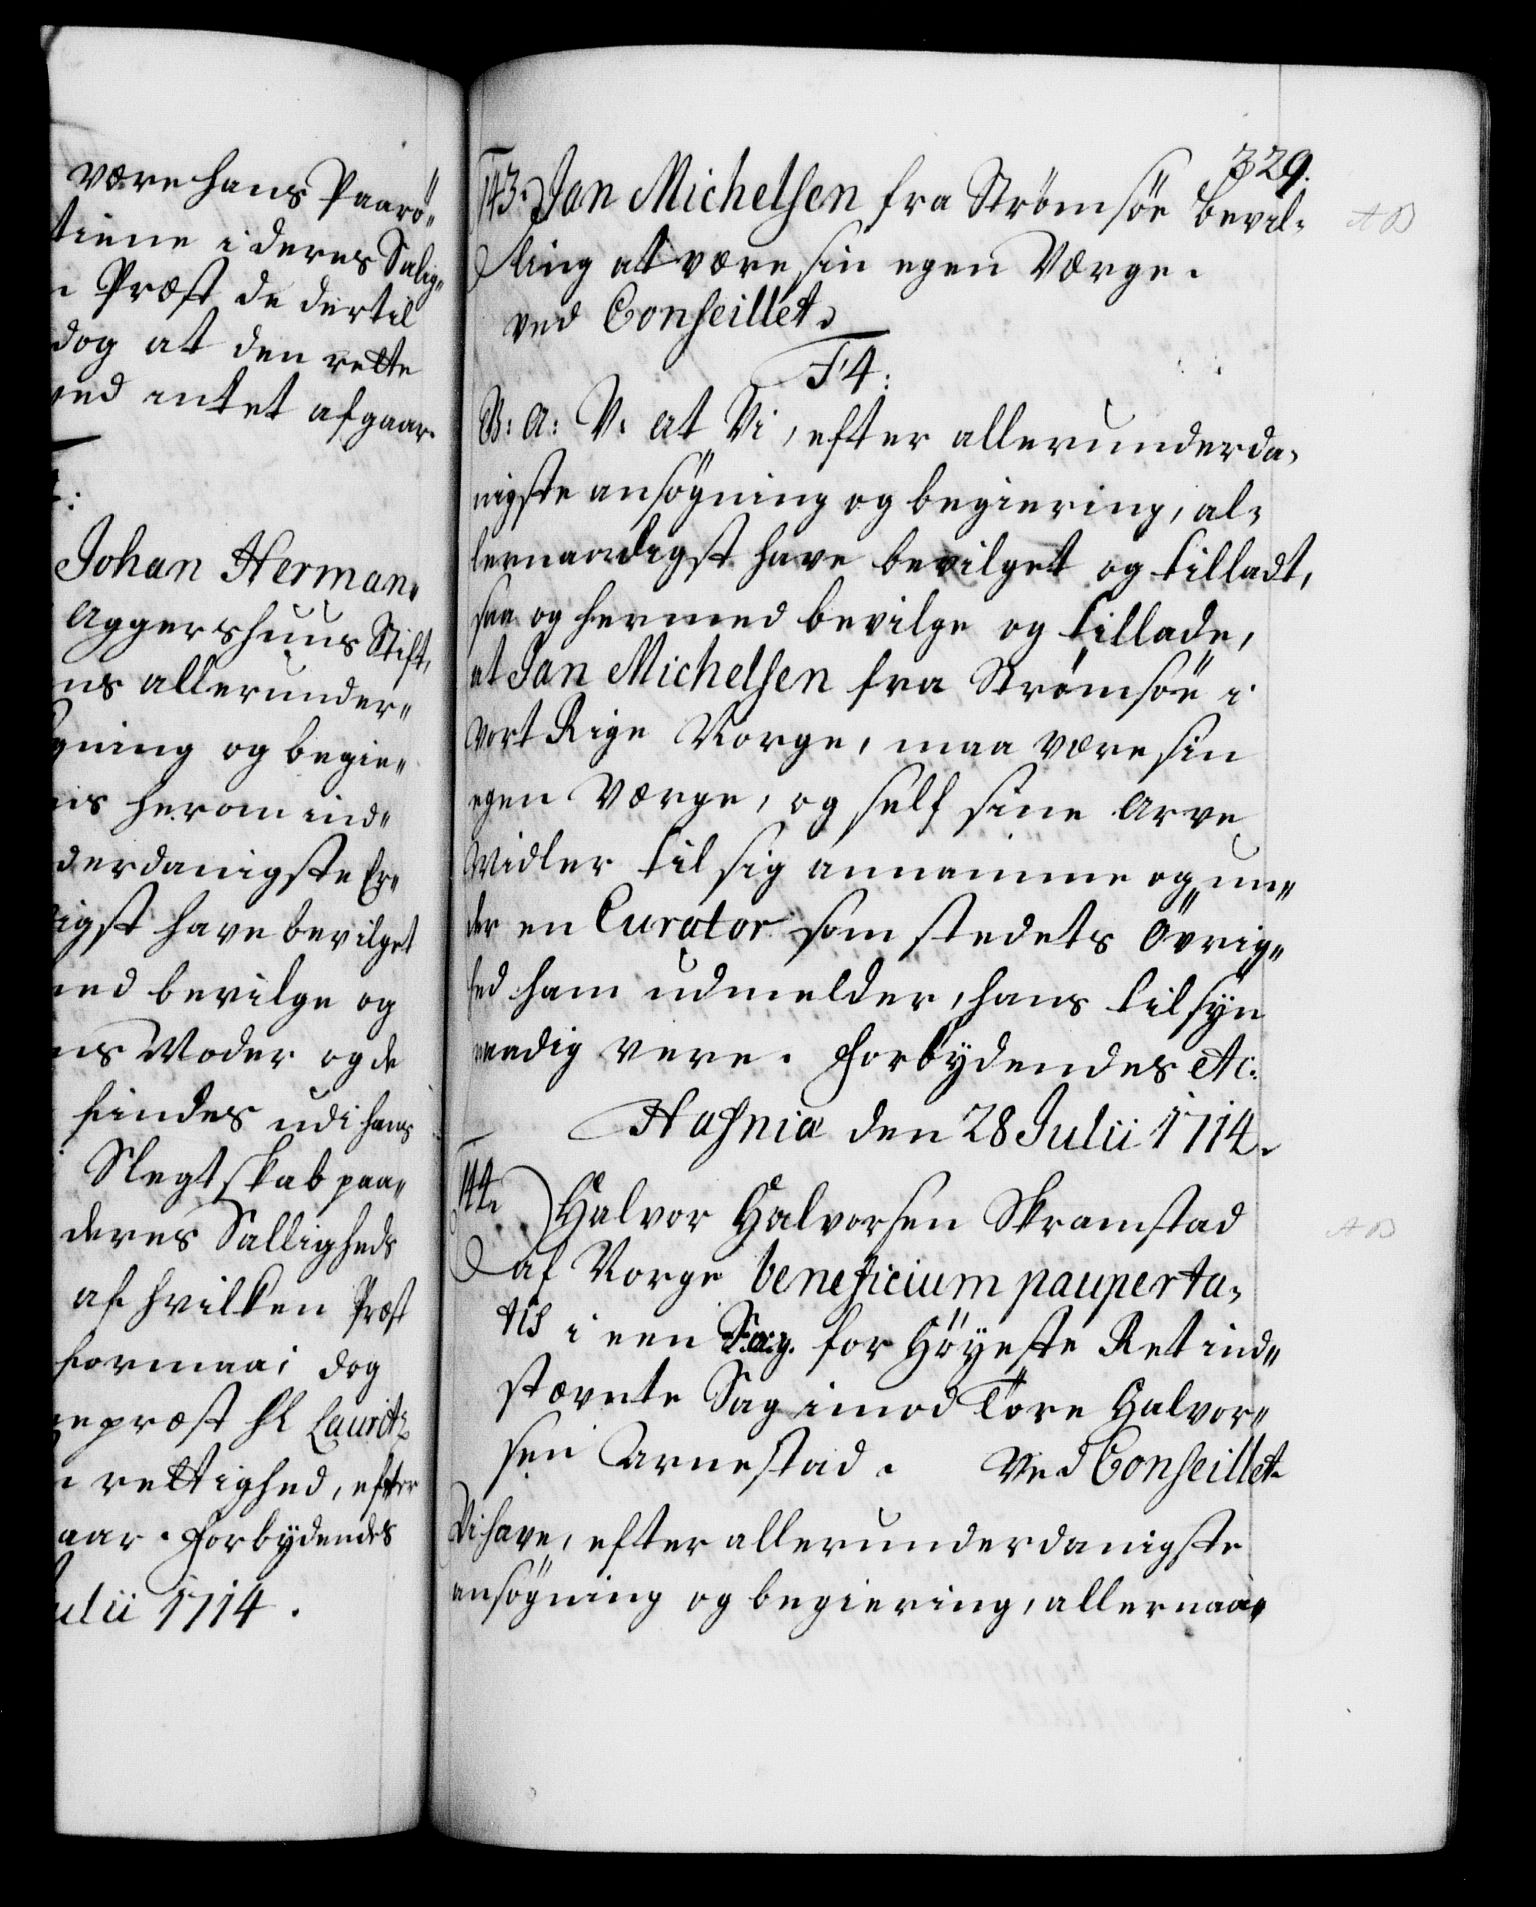 være hans Paarö„
tiene i deres Salig„
Præst de dertil
dog at den rette
ved intet afgaar.
Johan Herman„
Aggershuus Stift,
ns allerunder„
gning og begie„
ns herom ind„
derdanigste Er„
igst have bevilget
med bevilge og
ns Moder og de
findes udi hans
Slegtskab paa„
deres Salligheds
af hvilken Præst
formaa; dog
gepræst Hl Laurits
rettighed, efter
aar. Forbydendes
ulii 1714.
329.
143. Jan Michelsen fra Strømsöe bevil„
ling at være sin egen Værge.
ved Conseillet.
F4:
G: A: V. at Vi, efter allerunderda„
nigste ansögning og begiering, al„
lernaadigst have bevilget og tilladt,
saa og hermed bevilge og tillade,
at Jan Michelsen fra Strømsöe i
vort Rige Norge, maa være sin
egen Værge, og self sine Arve
Midler til sig annamme og un„
der en Curator som stedets Övrig„
hed ham udmelder, hans tilsyn
raadig være. Forbydendes etc:
Hafniæ den 28 Julii 1714.
144. Halvor Halvorsen Skramstad
af Norge beneficium pauperta„
tis i een Sag. for Höyeste Ret ind„
stævnte Sag imod Tore Halvor„
sen Arnestad. Ved Conseillet
Vi have, efter allerunderdanigste
ansögning og begiering, allernaa„